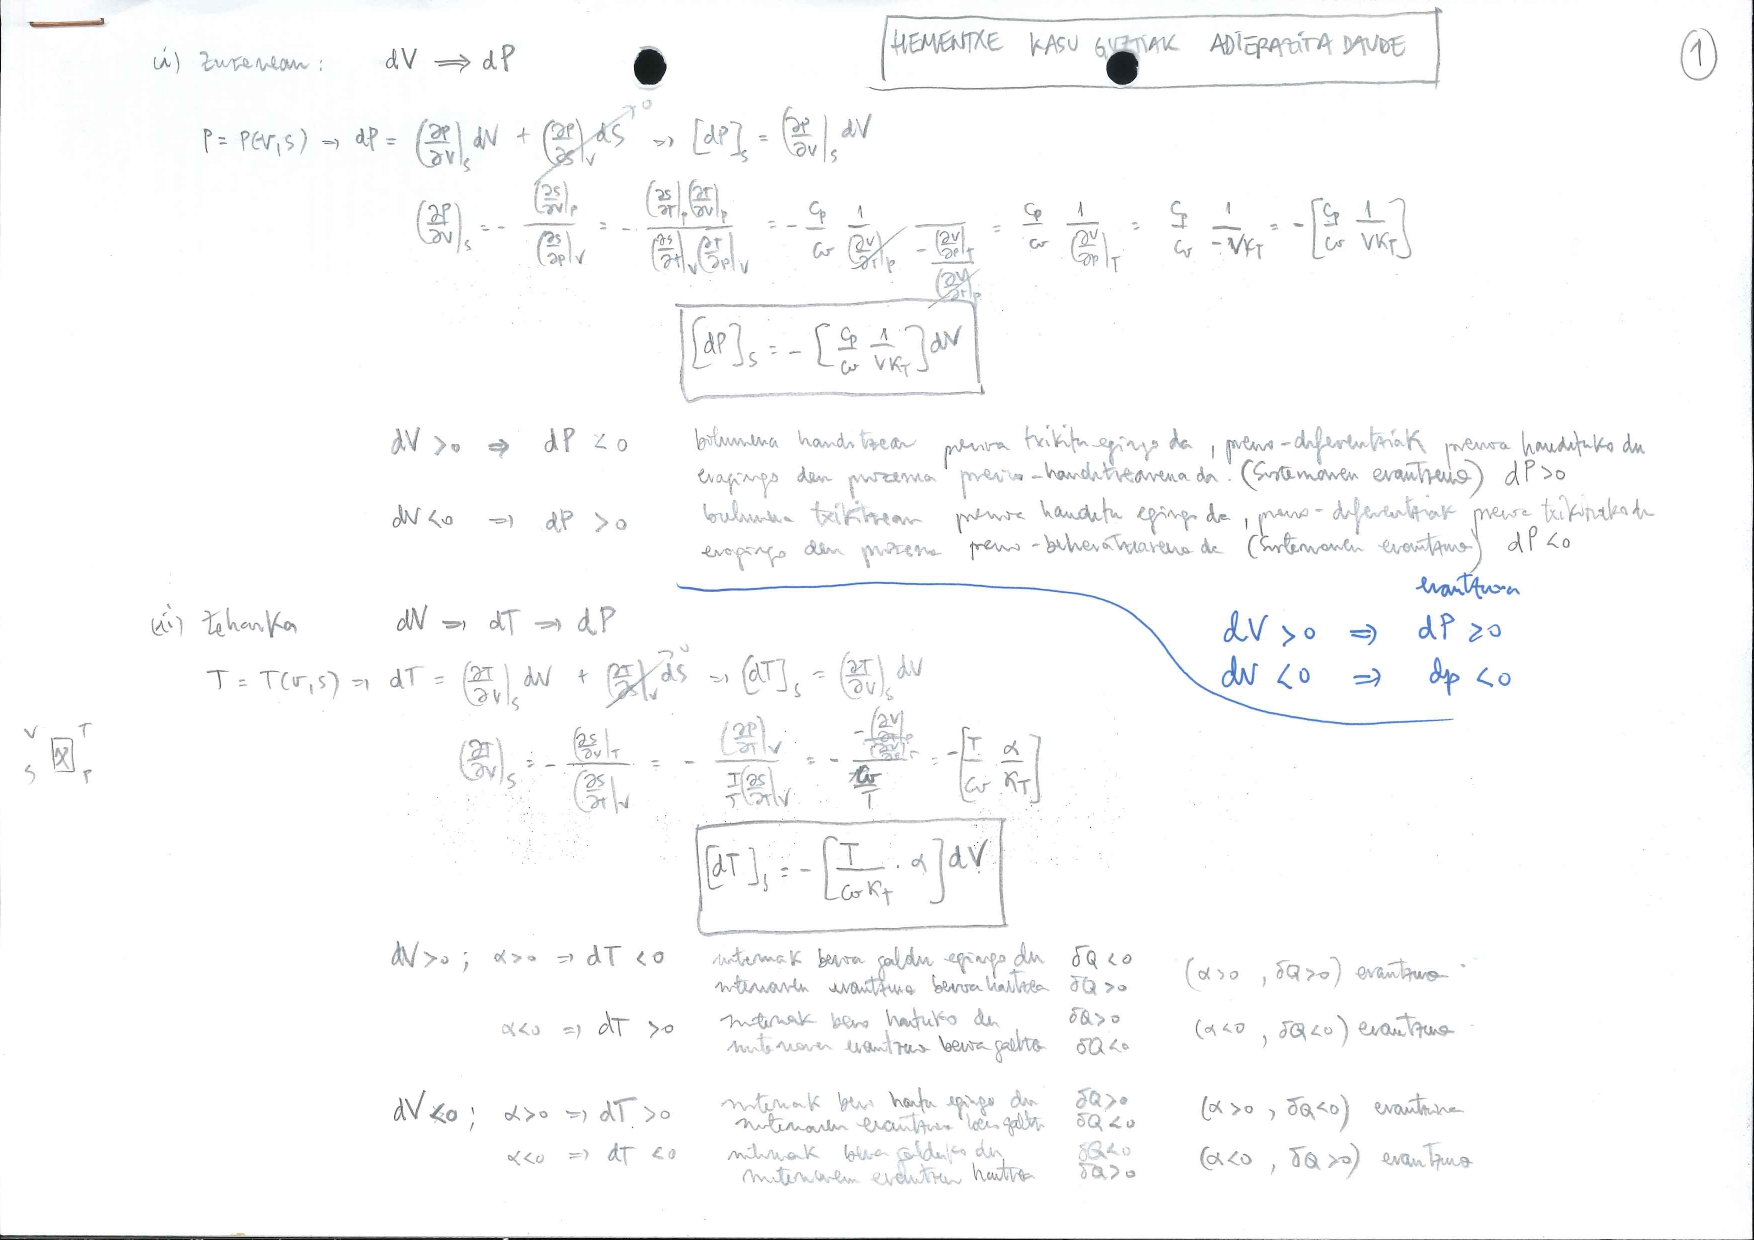 HEMENTXE KASU GUZTIAK ADIERAZITA DAUDE
1
ii) Zuzenean: dV ⇒ dP
P = P(V,S) ⇒ dP = (∂P/∂V)_S dV + (∂P/∂S)_V dS →0 ⇒ [dP]_S = (∂P/∂V)_S dV
(∂P/∂V)_S = - (∂S/∂V)_P / (∂S/∂P)_V = - (∂S/∂T)_P (∂T/∂V)_P / (∂S/∂T)_V (∂T/∂P)_V = - Cp/Cv 1/(∂V/∂T)_P 1/(-(∂V/∂P)_T/(∂V/∂T)_P) = Cp/Cv 1/(∂V/∂P)_T = Cp/Cv 1/(-VK_T) = - [Cp/Cv 1/(VK_T)]
[dP]_S = - [Cp/Cv 1/(VK_T)] dV
dV > 0 ⇒ dP < 0 bolumena handitzean presioa txikitu egingo da, presio-diferentziak presioa handituko du
eragingo den prozesua presio-handitzearena da. (Sistemaren erantzuna) dP>0
dV < 0 ⇒ dP > 0 bolumena txikitzean presioa handitu egingo da, presio-diferentziak presioa txikituko du
eragingo den prozesua presio-beheratzearena da (Sistemaren erantzuna) dP<0
erantzuna
dV > 0 ⇒ dP ≥ 0
dV < 0 ⇒ dp < 0
iii) Zeharka dV ⇒ dT ⇒ dP
T = T(V,S) ⇒ dT = (∂T/∂V)_S dV + (∂T/∂S)_V dS →0 ⇒ [dT]_S = (∂T/∂V)_S dV
V T
S α P
(∂T/∂V)_S = - (∂S/∂V)_T / (∂S/∂T)_V = - (∂P/∂T)_V / (T/T (∂S/∂T)_V) = - (-(∂V/∂T)_P/(∂V/∂P)_T) / (Cv/T) = - [T/Cv α/K_T]
[dT]_S = - [T/(Cv K_T) · α] dV
dV > 0; α > 0 ⇒ dT < 0 sistemak beroa galdu egingo du δQ < 0
sistemaren erantzuna beroa hartzea δQ > 0 (α>0, δQ>0) erantzuna
α < 0 ⇒ dT > 0 sistemak beroa hartuko du δQ > 0
sistemaren erantzuna beroa galtzea δQ < 0 (α<0, δQ<0) erantzuna
dV < 0; α > 0 ⇒ dT > 0 sistemak bero hartu egingo du δQ > 0
sistemaren erantzuna beroa galtzea δQ < 0 (α>0, δQ<0) erantzuna
α < 0 ⇒ dT < 0 sistemak beroa galduko du δQ < 0
sistemaren erantzuna hartzea δQ > 0 (α<0, δQ>0) erantzuna